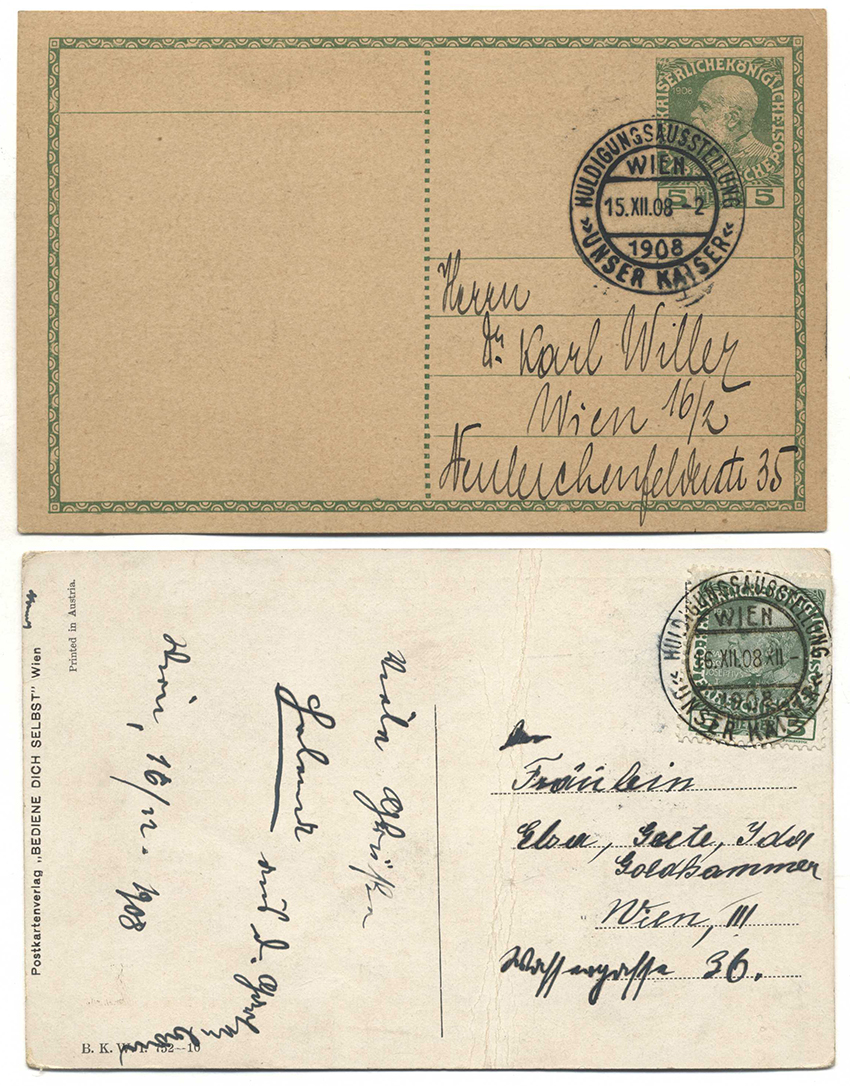 KAISERLICHEKÖNIGLICHE
1908
5 5
HULDIGUNGSAUSSTELLUNG
WIEN
15.XII.08 - 2
1908
»UNSER KAISER«
Herrn
Dr. Karl Willer
Wien 16/2
Neulerchenfelderstr 35
HULDIGUNGSAUSSTELLUNG
WIEN
16.XII.08 XII -
1908
»UNSER KAISER«
5
Printed in Austria.
Postkartenverlag „BEDIENE DICH SELBST" Wien
Wien, 16/12. 1908
Viele Grüße
und d.
Fräulein
Elsa, Grete, Ida
Goldhammer
Wien, III
Wassergasse 36.
B. K. W. I. 752-10